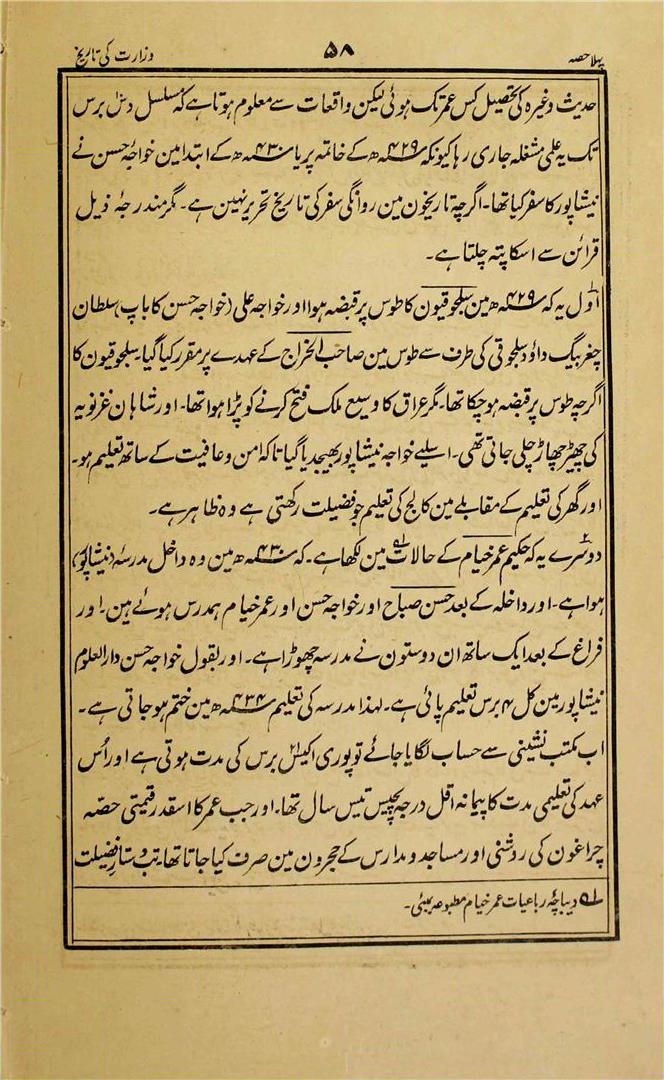 پہلا حصہ
۵۸
وزارت کی تاریخ
حدیث وغیرہ کی تحصیل کس عمر تک ہوئی لیکن واقعات سے معلوم ہوتا ہے کہ مسلسل دس برس
تک یہ علمی مشغلہ جاری رہا کیونکہ ۴۲۹ھ کے خاتمہ پر یا ۴۳۰ھ کے ابتدا مین خواجہ حسن نے
نیشاپور کا سفر کیا تھا۔ اگرچہ تاریخون مین روانگی سفر کی تاریخ تحریر نہین ہے۔ مگر مندرجۂ ذیل
قرائن سے اسکا پتہ چلتا ہے۔
اوّل یہ کہ ۴۲۹ھ مین سلجوقیون کا طوس پر قبضہ ہوا اور خواجہ علی (خواجہ حسن کا باپ) سلطان
چغربیگ داؤد سلجوقی کی طرف سے طوس مین صاحب الخراج کے عہدے پر مقرر کیا گیا۔ سلجوقیون کا
اگرچہ طوس پر قبضہ ہوچکا تھا۔ مگر عراق کا وسیع ملک فتح کرنے کو پڑا ہوا تھا۔ اور شاہان غزنویہ
کی چھیڑ چھاڑ چلی جاتی تھی۔ اسلیے خواجہ نیشاپور بھیجدیا گیا تاکہ امن و عافیت کے ساتھ تعلیم ہو۔
اور گھر کی تعلیم کے مقابلے مین کالج کی تعلیم جو فضیلت رکھتی ہے وہ ظاہر ہے۔
دوسرے یہ کہ حکیم عمر خیام کے حالات ۵۱ مین لکھا ہے۔ کہ ۴۳۰ھ مین وہ داخل مدرسہ (نیشاپور)
ہوا ہے۔ اور داخلہ کے بعد حسن صباح اور خواجہ حسن اور عمر خیام ہمدرس ہوئے ہین۔ اور
فراغ کے بعد ایک ساتھ ان دوستون نے مدرسہ چھوڑا ہے۔ اور بقول خواجہ حسن دارالعلوم
نیشاپور مین کل ۴ برس تعلیم پائی ہے۔ لہذا مدرسہ کی تعلیم ۴۳۴ھ مین ختم ہوجاتی ہے۔
اب مکتب نشینی سے حساب لگایا جائے تو پوری اکیس ۲۱ برس کی مدت ہوتی ہے اور اُس
عہد کی تعلیمی مدت کا پیمانہ اقل درجہ پچیس تیس سال تھا۔ اور جب عمر کا اسقدر قیمتی حصّہ
چراغون کی روشنی اور مساجد و مدارس کے حجرون مین صرف کیا جاتا تھا۔ تب دستار فضیلت
۵۱ دیباچۂ رباعیات عمر خیام مطبوعہ بمبئی۔